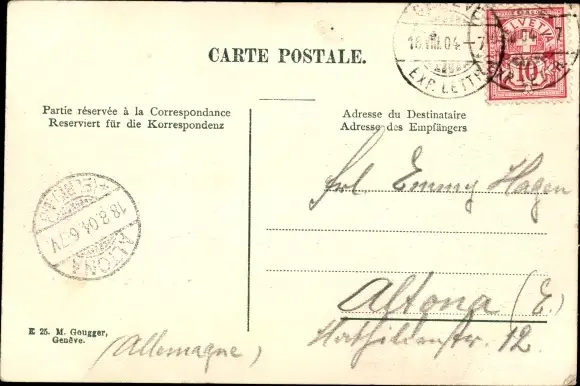 CARTE POSTALE.
HELVETIA
10
GENÈVE
16.III.04-7
EXP. LETTR.
Partie réservée à la Correspondance
Reserviert für die Korrespondenz
Adresse du Destinataire
Adresse des Empfängers
Frl. Emmy Hagen
Altona (E.)
Mathildenstr. 12.
18.3.04.6-7V
ALTONA
E 25. M. Gougger,
Genève.
(Allemagne)